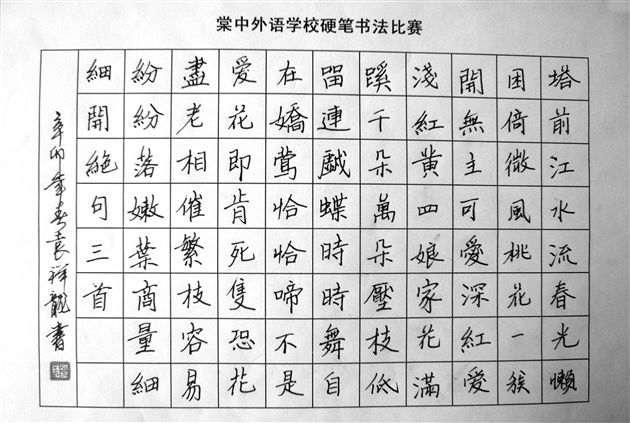 棠中外语学校硬笔书法比赛
塔前江水流春光懶
困倚微風桃花一簇
開無主可愛深紅愛
淺紅黄四娘家花滿
蹊千朵萬朵壓枝低
留連戲蝶時時舞自
在嬌鶯恰恰啼不是
愛花即肯死隻恐花
盡老相催繁枝容易
紛紛落嫩葉商量細
細開絕句三首
辛卯年春袁祥龍書